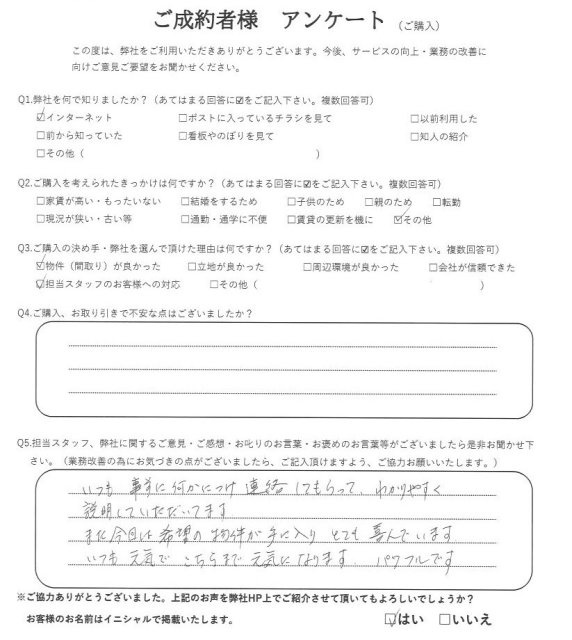 ご成約者様　アンケート（ご購入）
この度は、弊社をご利用いただきありがとうございます。今後、サービスの向上・業務の改善に
向けご意見ご要望をお聞かせください。
Q1.弊社を何で知りましたか？（あてはまる回答に☑をご記入下さい。複数回答可）
☑インターネット　□ポストに入っているチラシを見て　□以前利用した
□前から知っていた　□看板やのぼりを見て　□知人の紹介
□その他（　）
Q2.ご購入を考えられたきっかけは何ですか？（あてはまる回答に☑をご記入下さい。複数回答可）
□家賃が高い・もったいない　□結婚をするため　□子供のため　□親のため　□転勤
□現況が狭い・古い等　□通勤・通学に不便　□賃貸の更新を機に　☑その他
Q3.ご購入の決め手・弊社を選んで頂けた理由は何ですか？（あてはまる回答に☑をご記入下さい。複数回答可）
☑物件（間取り）が良かった　□立地が良かった　□周辺環境が良かった　□会社が信頼できた
☑担当スタッフのお客様への対応　□その他（　）
Q4.ご購入、お取り引きで不安な点はございましたか？
Q5.担当スタッフ、弊社に関するご意見・ご感想・お叱りのお言葉・お褒めのお言葉等がございましたら是非お聞かせ下
さい。（業務改善の為にお気づきの点がございましたら、ご記入頂けますよう、ご協力お願いいたします。）
いつも 事前に何かにつけ 連絡してもらって、わかりやすく
説明していただいてます
また今回は希望の物件が手に入り とても 喜んでいます
いつも 元気で こちらまで 元気になります. パワフルです
※ご協力ありがとうございました。上記のお声を弊社HP上でご紹介させて頂いてもよろしいでしょうか？
お客様のお名前はイニシャルで掲載いたします。　☑はい　□いいえ